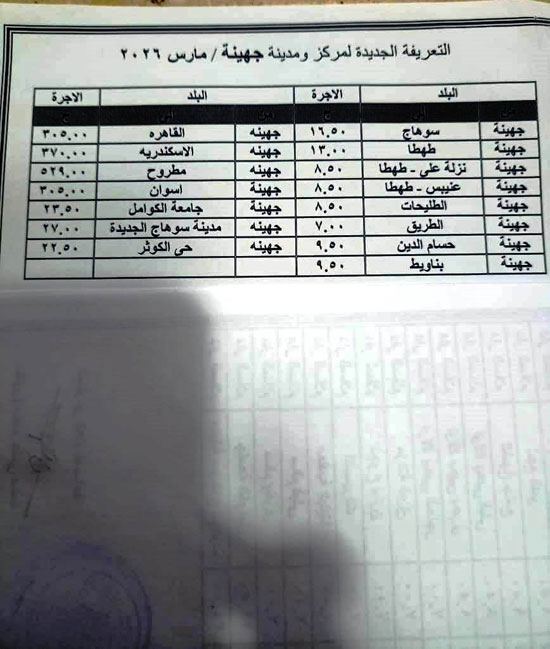 التعريفة الجديدة لمركز ومدينة جهينة / مارس ٢٠٢٦
البلد الاجرة البلد الاجرة
من الى ج من الى ج
جهينة سوهاج ١٦.٥٠ جهينه القاهره ٣٠٥.٠٠
جهينة طهطا ١٣.٠٠ جهينه الاسكندريه ٣٧٠.٠٠
جهينة نزلة على - طهطا ٨.٥٠ جهينه مطروح ٥٢٩.٠٠
جهينة عنيبس - طهطا ٨.٥٠ جهينه اسوان ٣٠٥.٠٠
جهينة الطليحات ٨.٥٠ جهينه جامعة الكوامل ٢٣.٥٠
جهينة الطريق ٧.٠٠ جهينه مدينة سوهاج الجديدة ٢٧.٠٠
جهينة حسام الدين ٩.٥٠ جهينه حى الكوثر ٢٢.٥٠
جهينة بناويط ٩.٥٠